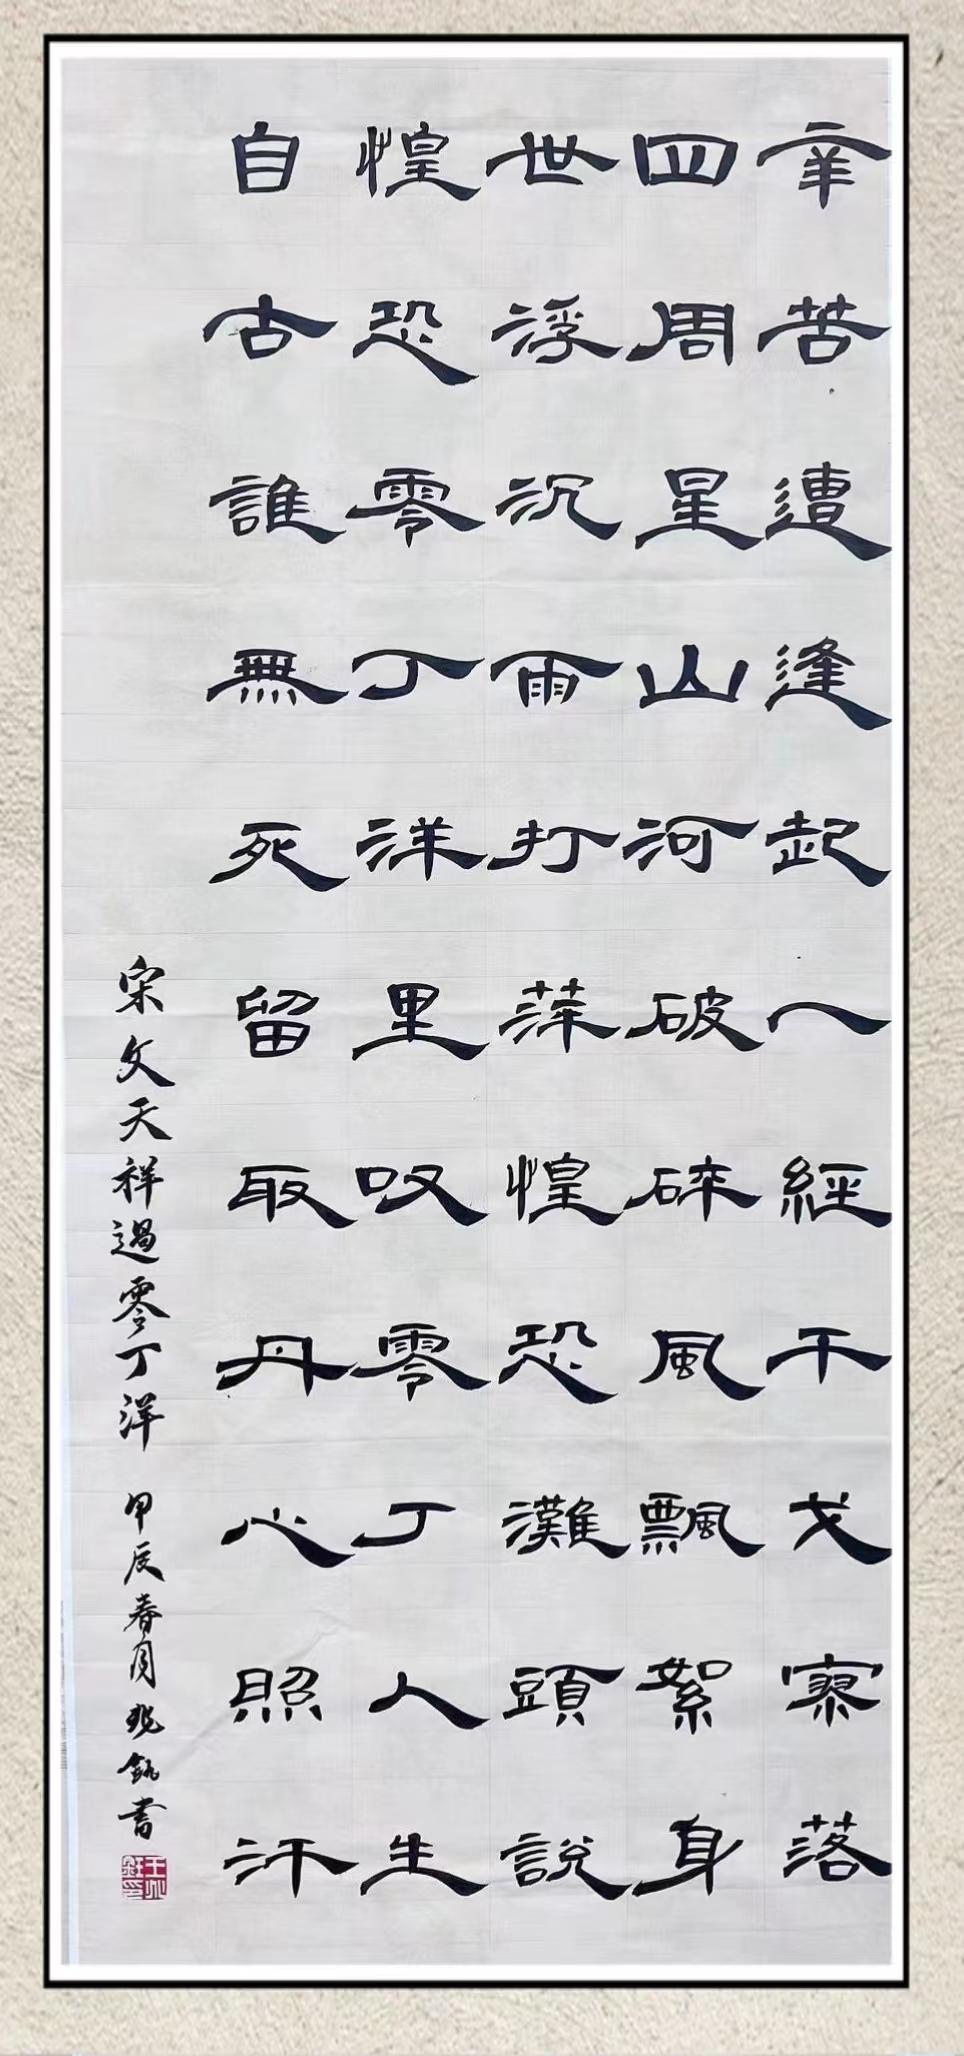 辛苦遭逢起一經干戈寥落
四周星山河破碎風飄絮身
世浮沉雨打萍惶恐灘頭說
惶恐零丁洋里叹零丁人生
自古誰無死留取丹心照汗
宋文天祥過零丁洋 甲辰春月兆鈺書